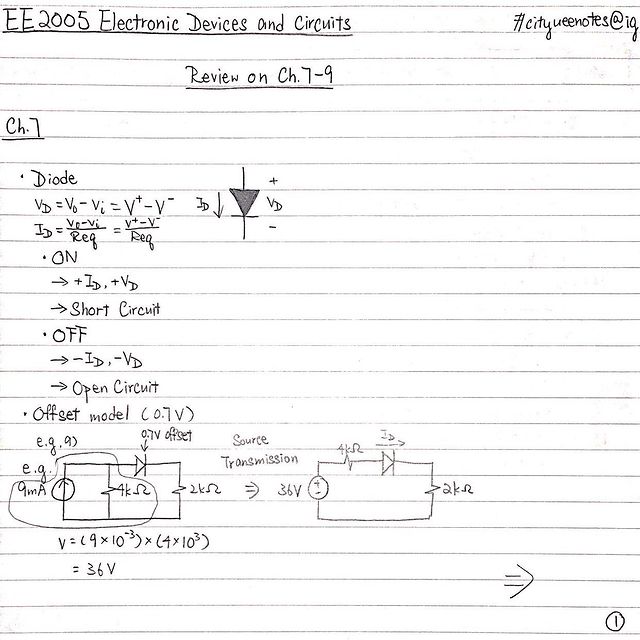 EE2005 Electronic Devices and Circuits
#cityueenotes@ig
Review on Ch.7-9
Ch.7
• Diode
V_D = V_o - V_i = V⁺ - V⁻
I_D = (V_o - V_i)/Req = (V⁺ - V⁻)/Req
I_D ↓
+
V_D
-
• ON
→ +I_D, +V_D
→ Short Circuit
• OFF
→ -I_D, -V_D
→ Open Circuit
• Offset model (0.7V)
e.g. a)
0.7V offset
e.g.
9mA
4kΩ
2kΩ
Source
Transmission
⇒
36V
+
-
4kΩ
I_D
2kΩ
V = (9×10⁻³)×(4×10³)
= 36V
⇒
1